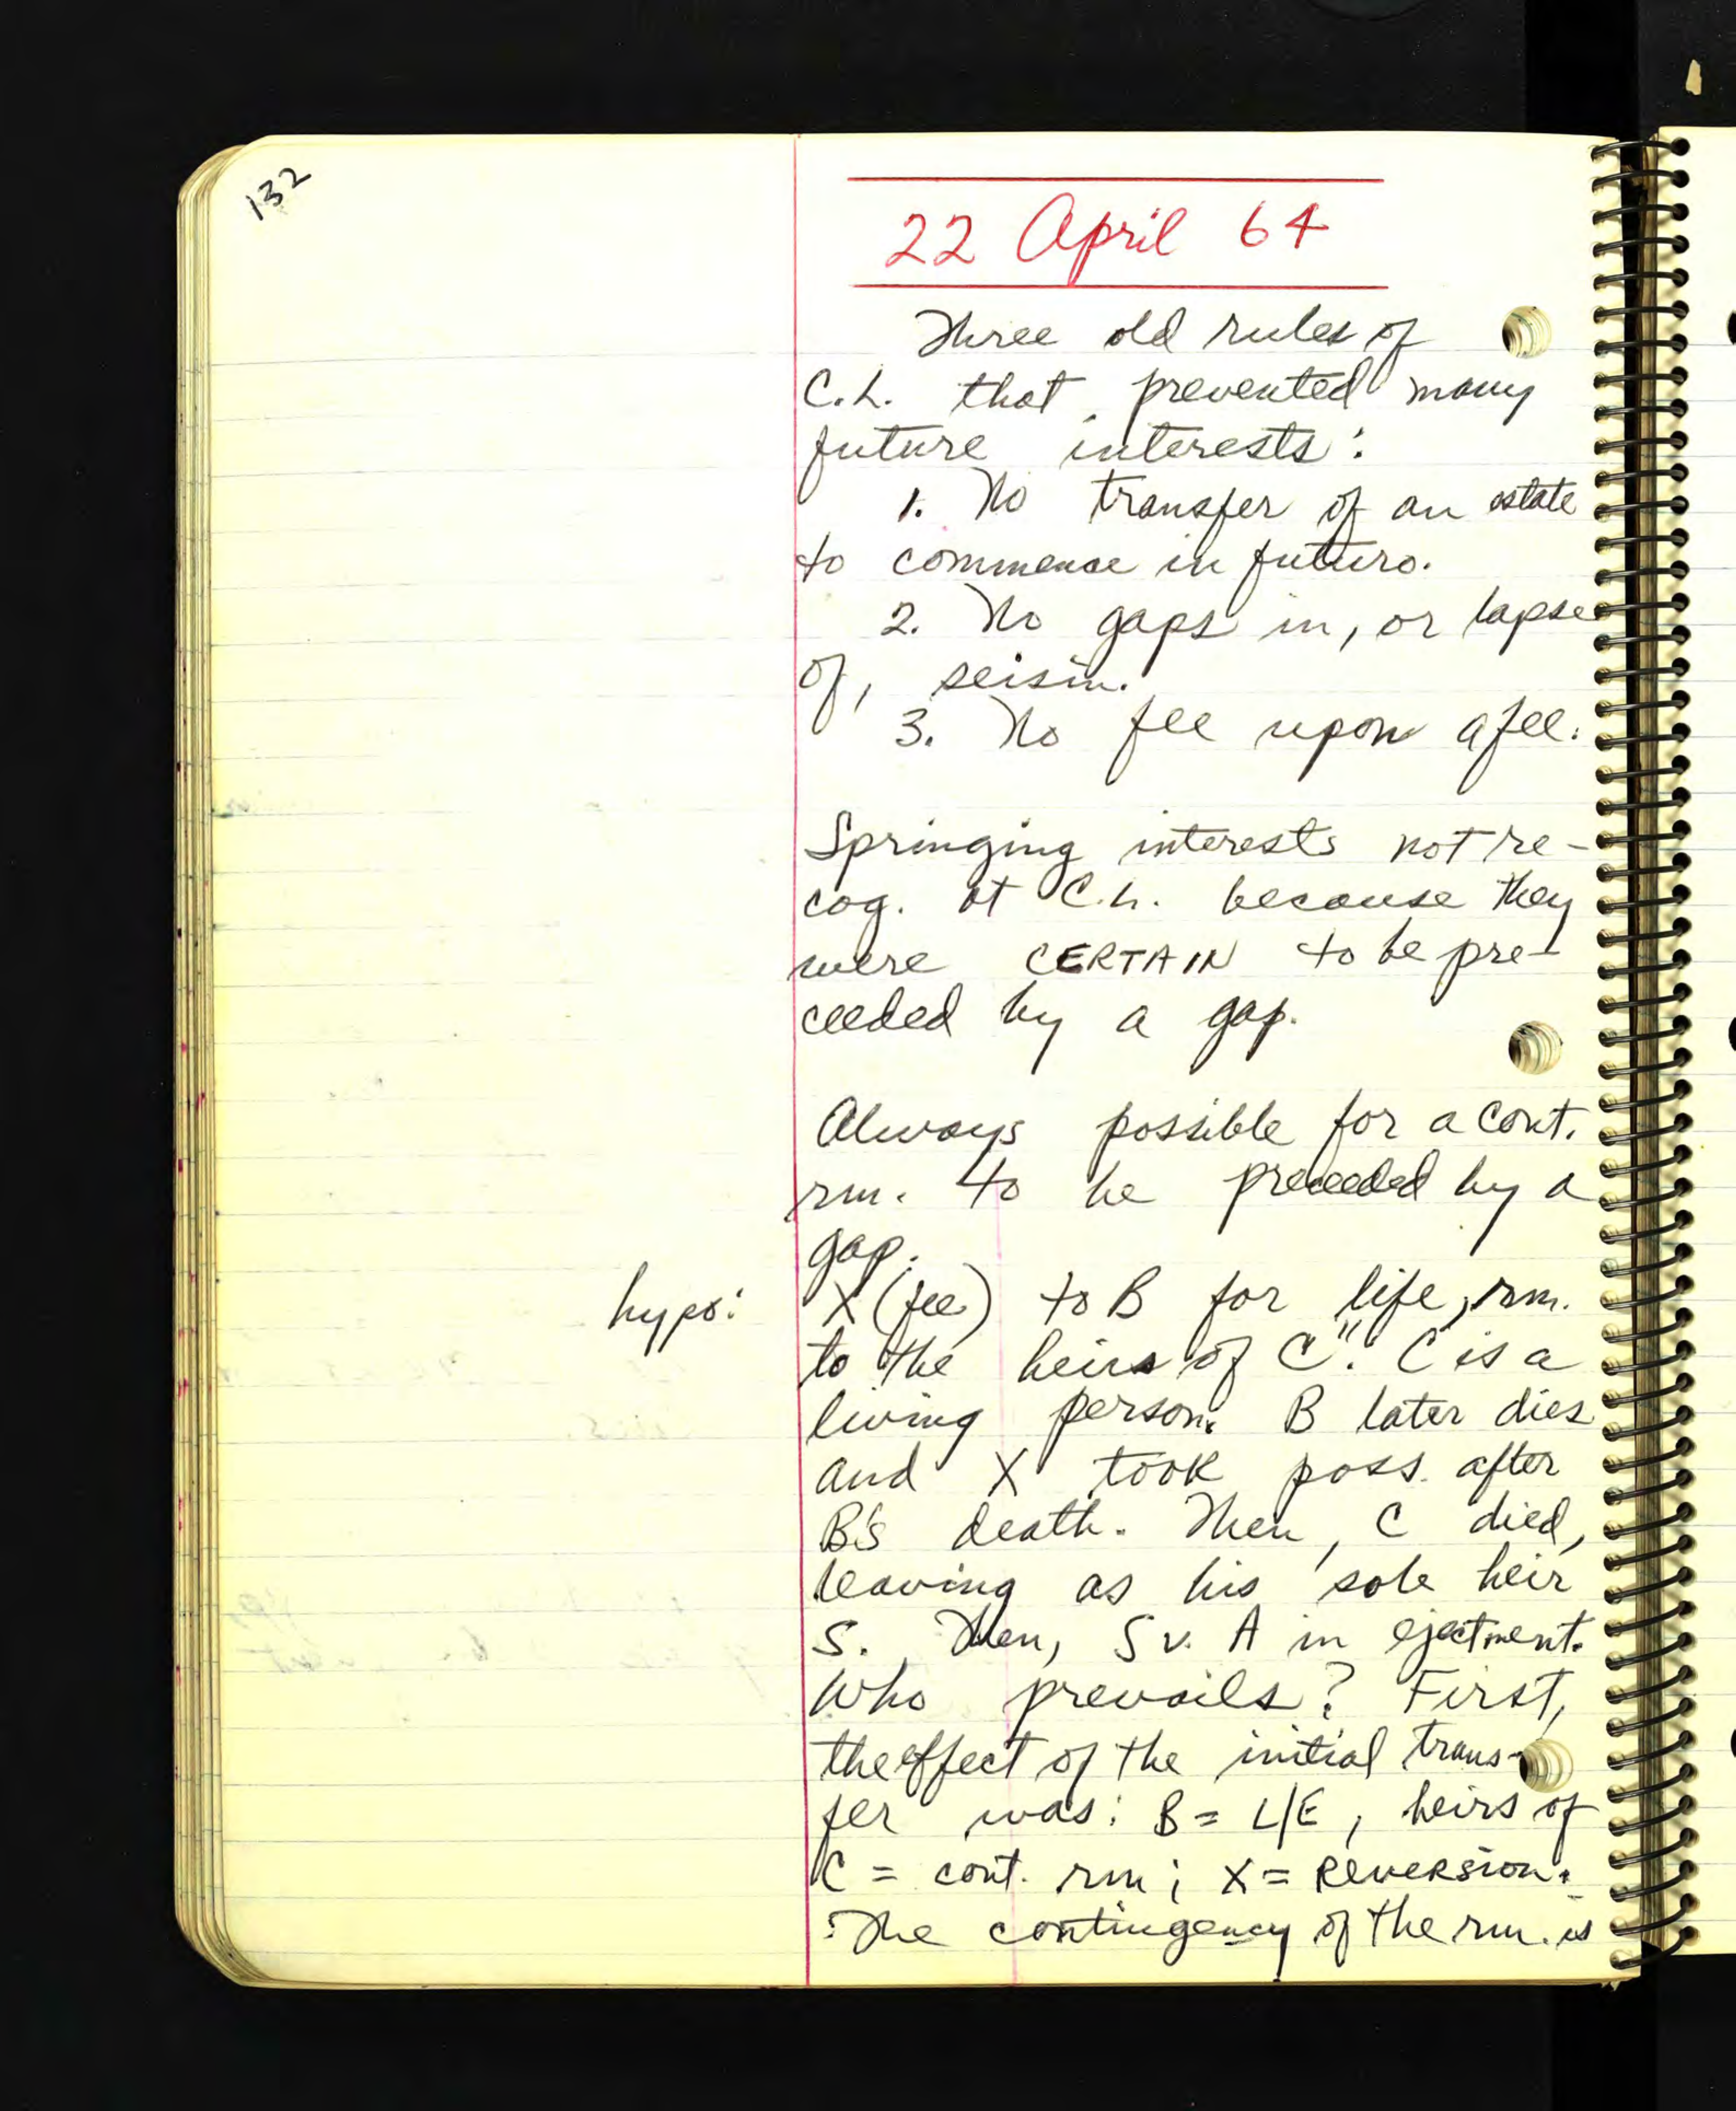 132
22 April 64
Three old rules of
C.L. that prevented many
future interests:
1. No transfer of an estate
to commence in futuro.
2. No gaps in, or lapse
of, seisin.
3. No fee upon a fee.
Springing interests not re-
cog. at C.L. because they
were CERTAIN to be pre-
ceeded by a gap.
Always possible for a cont.
rm. to be preceeded by a
gap.
hypo: X (fee) to B for life, rm.
to the heirs of C". C is a
living person. B later dies
and X took poss. after
B's death. Then, C died,
leaving as his sole heir
S. Then, S v. A in ejectment.
Who prevails? First,
the effect of the initial trans-
fer was: B = L/E, heirs of
C = cont. rm; X = REVERSION.
The contingency of the rm. is